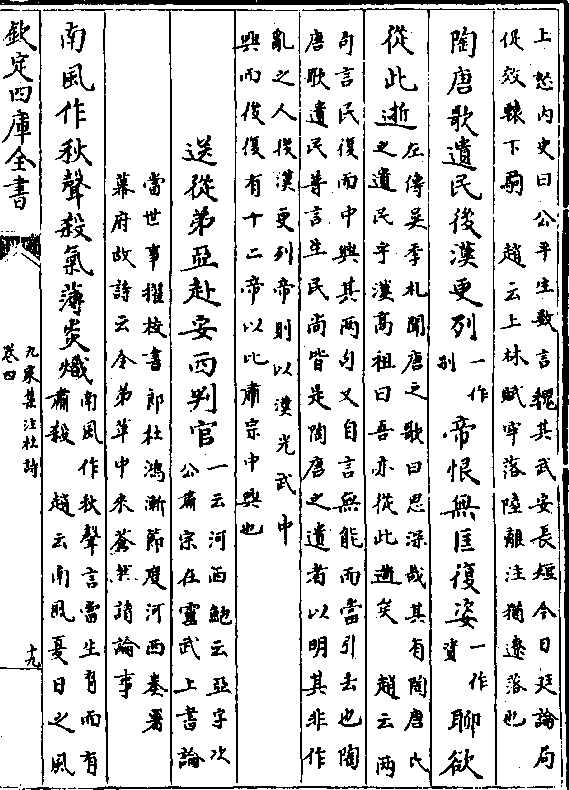 上怒内史曰公平生數言魏其武安長短今日廷論局
促效轅下駒　趙云上林賦牢落陸離注猶遼落也
陶唐歌遺民後漢更列一作别帝恨無匡復姿一作資聊欲
從此逝左傳吴季札聞唐之歌曰思深哉其有陶唐氏
之遺民乎漢髙祖曰吾亦從此逝矣　趙云兩
句言民復而中興其两句又自言無能而當引去也陶
唐歌遺民華言生民尚皆是陶唐之遺者以明其非作
亂之人後漢更列帝則以漢光武中
興而後復有十二帝以比肅宗中興也
送從弟亞赴安西判官一云河西鮑云亞字次
公肅宗在靈武上書論
當世事擢校書郎杜鴻漸節度河西奏署
幕府故詩云令弟草中來蒼然請論事
南風作秋聲殺氣薄炎熾南風作秋聲言當生育而有
肅殺　趙云南風夏日之風
欽定四庫全書
九家集注杜詩
卷四
十九